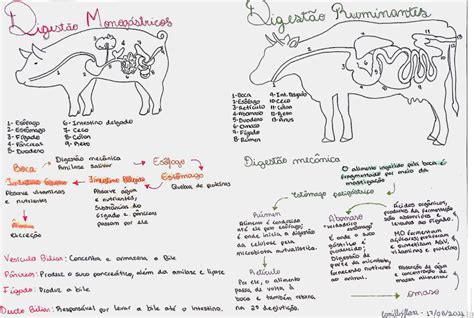 Digestão Monogástricos
1- Esôfago
2- Estômago
3- Fígado
4- Pâncreas
5- Duodeno
6- Intestino delgado
7- Ceco
8- Cólon
9- Reto
Boca
Digestão mecânica
Amilase salivar
Esôfago
Estômago
Quebra de proteínas
Intestino
Absorve água
e nutrientes,
Substâncias do
fígado e pâncreas
passam por ali
Intestino
Absorve vitaminas
e nutrientes
Excreção
Vesícula Biliar: Concentra e armazena a Bile
Pâncreas: Produz o suco pancreático, além da amilase e lipase
Fígado: Produz a bile
Ducto Biliar: Responsável por levar a bile até o intestino.
Digestão Ruminantes
1- Boca
2- Esôfago
3- Retículo
4- Abomaso
5- Duodeno
6- Omaso
7- Fígado
8- Rúmen
9- Int. Delgado
10- Ceco
11- Cólon
12- Reto
13- Ânus
Digestão mecânica
O alimento ingerido pela boca é
fragmentado por meio da
mastigação
Estômago
Rúmen
Alimento é conduzido
até ele pelo esôfago;
é onde inicia a digestão
da celulose pela
microbiota mutualística.
Retículo
Por ele, o alimento
de volta à
boca e também retorna
na 2ª deglutição.
Abomaso
"verdadeiro
estômago"
É onde o suco
gástrico é
produzido;
Digestão
química de
alimento
fermentado no
rúmen
Ácidos orgânicos,
produtos da fermentação
são absorvidos e
desviados ao Fígado.
MO fermentam
açúcares, proteínas
e aumentam AGV,
vitaminas e proteínas
Absorção de água
e concentração de
massa alimentar
Omaso